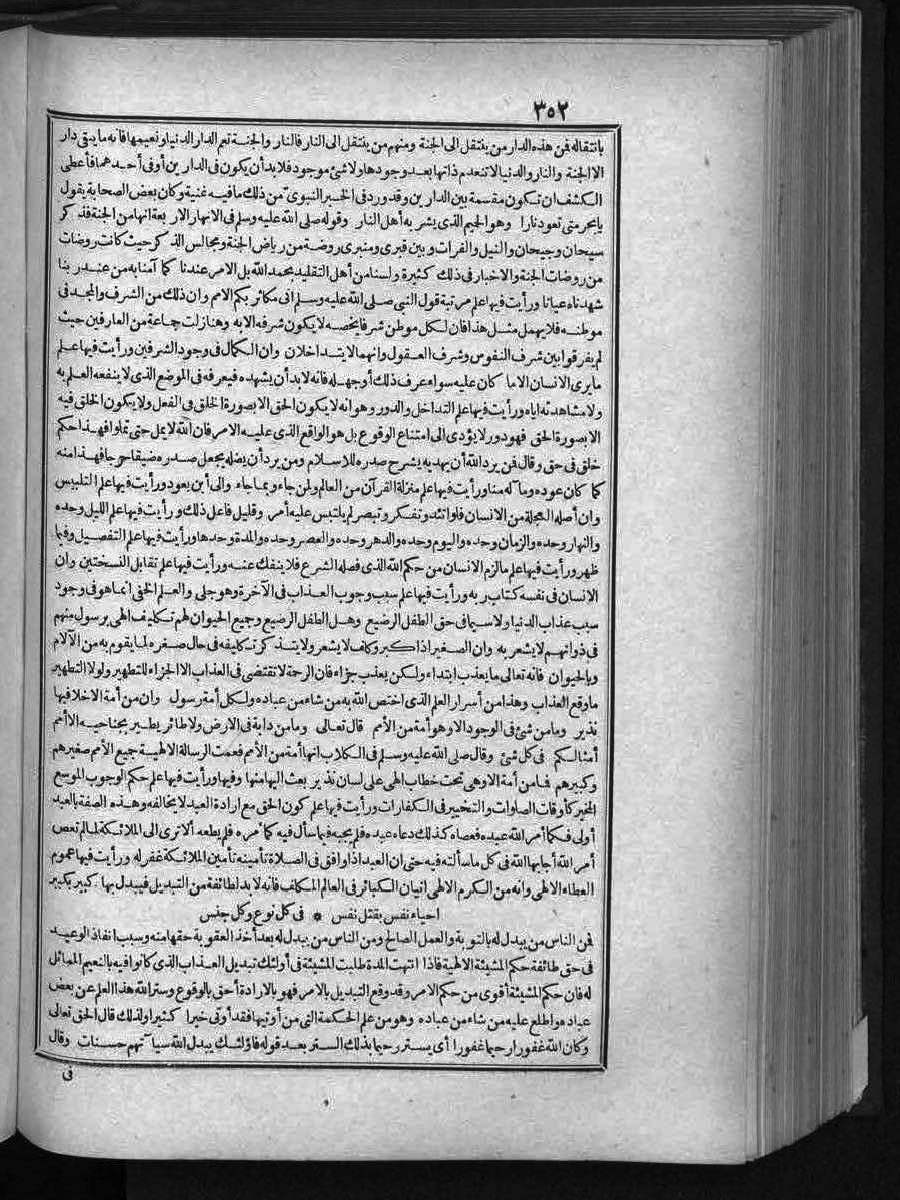 ٣٥٢
بانتقاله فمن هذه الدار من ينتقل الى الجنة ومنهم من ينتقل الى النار فالنار والجنة تعم الدار الدنيا ونعيمها فانه ما يبقى دار
الا الجنة والنار والدنيا لا تنعدم ذاتها بعد وجودها ولا شئ موجود فلا بد أن يكون فى الدارين أو فى أحدهما فأعطى
الكشف ان تكون مقسمة بين الدارين وقد ورد فى الخبر النبوى من ذلك ما فيه غنية وكان بعض الصحابة يقول
يا بحر متى تعود نارا وهو الحميم الذى يشربه أهل النار وقوله صلى الله عليه وسلم فى الانهار الاربعة انها من الجنة فذكر
سيحان وجيحان والنيل والفرات وبين قبرى ومنبرى روضة من رياض الجنة ومجالس الذكر حيث كانت روضات
من روضات الجنة والاخبار فى ذلك كثيرة ولسنا من أهل التقليد بحمد الله بل الامر عندنا كما آمنا به من عند ربنا
شهدناه عيانا ورأيت فيها علم مرتبة قول النبى صلى الله عليه وسلم انى مكاثر بكم الامم وان ذلك من الشرف والمجد فى
موطنه فلا يهمل مثل هذا فان لكل موطن شرفا يخصه لا يكون شرفه الا به وهنا زلت جماعة من العارفين حيث
لم يفرقوا بين شرف النفوس وشرف العقول وانهما لا يتداخلان وان الكمال فى وجود الشرفين ورأيت فيها علم
ما يرى الانسان الا ما كان عليه سواء عرف ذلك أوجهله فانه لا بد أن يشهده فيعرفه فى الموضع الذى لا ينفعه العلم به
ولا مشاهدته اياه ورأيت فيها علم التداخل والدور وهو انه لا يكون الحق الا بصورة الخلق فى الفعل ولا يكون الخلق فيه
الا بصورة الحق فهو دور لا يؤدى الى امتناع الوقوع بل هو الواقع الذى عليه الامر فان الله لا يمل حتى تملوا فهذا حكم
خلق فى حق وقال فمن يرد الله أن يهديه يشرح صدره للاسلام ومن يرد أن يضله يجعل صدره ضيقا حرجا فهذا منه
كما كان عوده وما له منا ورأيت فيها علم منزلة القرآن من العالم ولمن جاء وبما جاء والى أين يعود ورأيت فيها علم التلبيس
وان أصله العجلة من الانسان فلو اتئد وتفكر وتبصر لم يلتبس عليه أمر وقليل فاعل ذلك ورأيت فيها علم الليل وحده
والنهار وحده والزمان وحده واليوم وحده والدهر وحده والعصر وحده والمدة وحدها ورأيت فيها علم التفصيل وفيما
ظهر ورأيت فيها علم ما لزم الانسان من حكم الله الذى فصله الشرع فلا ينفك عنه ورأيت فيها علم تقابل النسختين وان
الانسان فى نفسه كتاب ربه ورأيت فيها علم سبب وجوب العذاب فى الآخرة وهو جلى والعلم الخفى انما هو فى وجود
سبب عذاب الدنيا ولا سيما فى حق الطفل الرضيع وهل الطفل الرضيع وجميع الحيوان لهم تكليف الهى برسول منهم
فى ذواتهم لا يشعر به وان الصغير اذا كبر وكلف لا يشعر ولا يتذكر تكليفه فى حال صغره لما يقوم به من الآلام
وبالحيوان فانه تعالى ما يعذب ابتداء ولكن يعذب جزاء فان الرحمة لا تقتضى فى العذاب الا الجزاء للتطهير ولولا التطهير
ما وقع العذاب وهذا من أسرار العلم الذى اختص الله به من شاء من عباده ولكل أمة رسول وان من أمة الا خلا فيها
نذير وما من شئ فى الوجود الا وهو أمة من الأمم قال تعالى وما من دابة فى الارض ولا طائر يطير بجناحيه الا أمم
أمثالكم فى كل شئ وقال صلى الله عليه وسلم فى الكلاب انها أمة من الأمم فعمت الرسالة الالهية جميع الأمم صغيرهم
وكبيرهم فما من أمة الا وهى تحت خطاب الهى على لسان نذير بعث اليها منها وفيها ورأيت فيها علم حكم الوجوب الموسع
المخير كأوقات الصلوات والتخيير فى الكفارات ورأيت فيها علم كون الحق مع ارادة العبد لا يخالفه وهذه الصفة بالعبد
أولى فكما أمر الله عبده فعصاه كذلك دعاه عبده فلم يجبه فيما سأل فيه كما أمره فلم يطعه ألا ترى الى الملائكة لما لم تعص
أمر الله أجابها الله فى كل ما سألته فيه حتى ان العبد اذا وافق فى الصلاة تأمينه تأمين الملائكة غفر له ورأيت فيها عموم
العطاء الالهى وانه من الكرم الالهى اتيان الكبائر فى العالم المكلف فانه لا بد لطائفة من التبديل فيبدل بها كبير بكبير
احياء نفس بقتل نفس * فى كل نوع وكل جنس
فمن الناس من يبدل له بالتوبة والعمل الصالح ومن الناس من يبدل له بعد أخذ العقوبة حقها منه وسبب انفاذ الوعيد
فى حق طائفة حكم المشيئة الالهية فاذا انتهت المدة طلبت المشيئة فى أولئك تبديل العذاب الذى كانوا فيه بالنعيم المماثل
له فان حكم المشيئة أقوى من حكم الامر وقد وقع التبديل بالامر فهو بالارادة أحق بالوقوع وستر الله هذا العلم عن بعض
عباده واطلع عليه من شاء من عباده وهو من علم الحكمة التى من أوتيها فقد أوتى خيرا كثيرا ولذلك قال الحق تعالى
وكان الله غفورا رحيما غفورا أى يستر رحيما بذلك الستر بعد قوله فأولئك يبدل الله سيآتهم حسنات وقال
فى